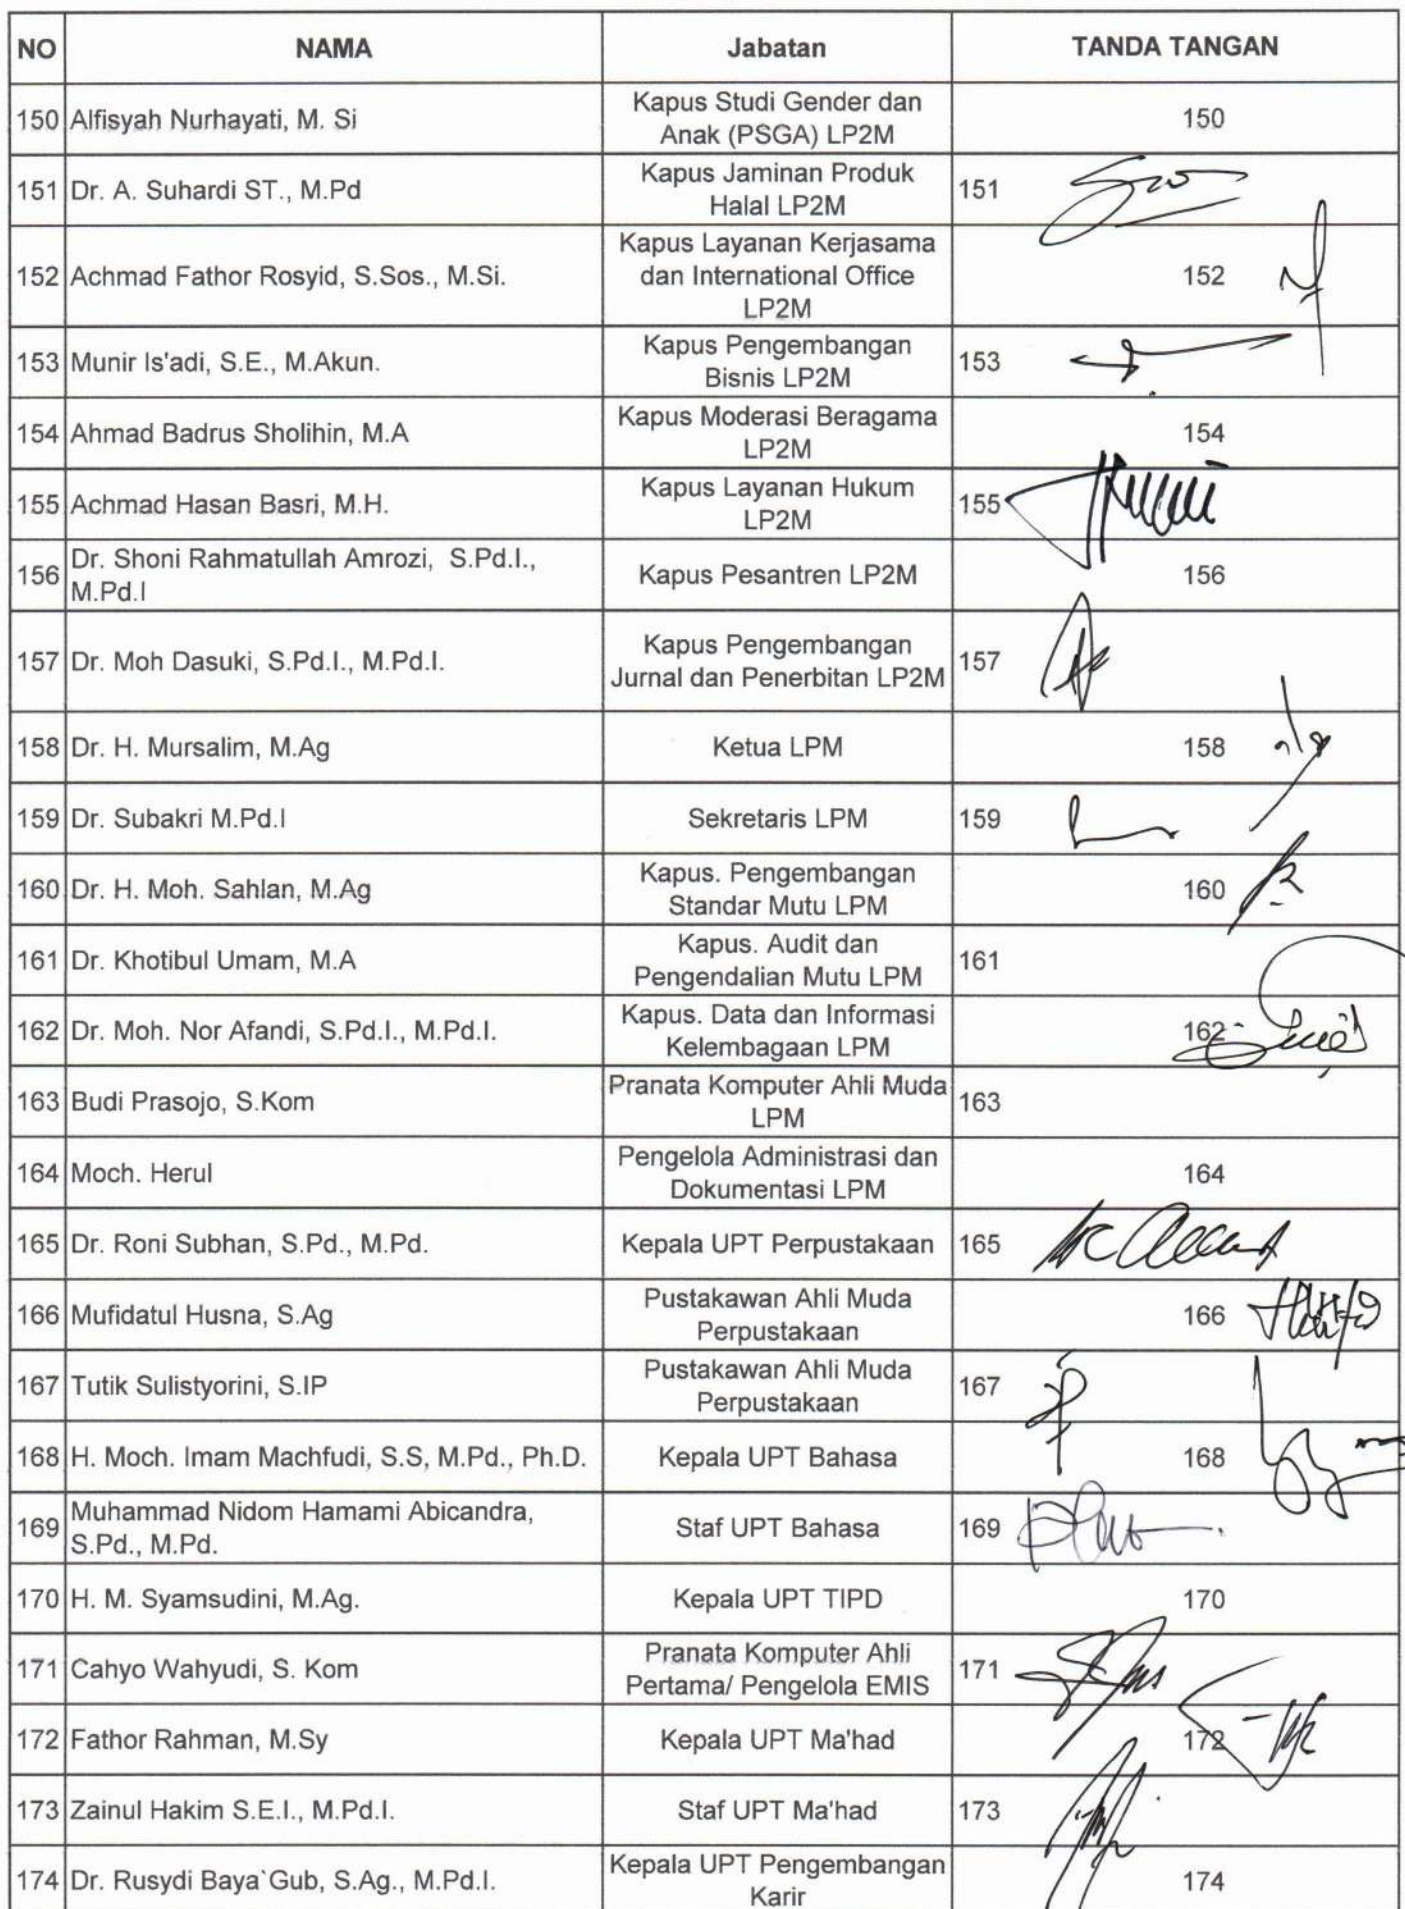 NO NAMA Jabatan TANDA TANGAN
150 Alfisyah Nurhayati, M. Si Kapus Studi Gender dan 150
Anak (PSGA) LP2M
151 Dr. A. Suhardi ST., M.Pd Kapus Jaminan Produk 151
Halal LP2M
Kapus Layanan Kerjasama
152 Achmad Fathor Rosyid, S.Sos., M.Si. dan International Office 152
LP2M
153 Munir Is'adi, S.E., M.Akun. Kapus Pengembangan 153
Bisnis LP2M
154 Ahmad Badrus Sholihin, M.A Kapus Moderasi Beragama 154
LP2M
155 Achmad Hasan Basri, M.H. Kapus Layanan Hukum 155
LP2M
156 Dr. Shoni Rahmatullah Amrozi, S.Pd.I., Kapus Pesantren LP2M 156
M.Pd.I
157 Dr. Moh Dasuki, S.Pd.I., M.Pd.I. Kapus Pengembangan 157
Jurnal dan Penerbitan LP2M
158 Dr. H. Mursalim, M.Ag Ketua LPM 158
159 Dr. Subakri M.Pd.I Sekretaris LPM 159
160 Dr. H. Moh. Sahlan, M.Ag Kapus. Pengembangan 160
Standar Mutu LPM
161 Dr. Khotibul Umam, M.A Kapus. Audit dan 161
Pengendalian Mutu LPM
162 Dr. Moh. Nor Afandi, S.Pd.I., M.Pd.I. Kapus. Data dan Informasi 162
Kelembagaan LPM
163 Budi Prasojo, S.Kom Pranata Komputer Ahli Muda 163
LPM
164 Moch. Herul Pengelola Administrasi dan 164
Dokumentasi LPM
165 Dr. Roni Subhan, S.Pd., M.Pd. Kepala UPT Perpustakaan 165
166 Mufidatul Husna, S.Ag Pustakawan Ahli Muda 166
Perpustakaan
167 Tutik Sulistyorini, S.IP Pustakawan Ahli Muda 167
Perpustakaan
168 H. Moch. Imam Machfudi, S.S, M.Pd., Ph.D. Kepala UPT Bahasa 168
169 Muhammad Nidom Hamami Abicandra, Staf UPT Bahasa 169
S.Pd., M.Pd.
170 H. M. Syamsudini, M.Ag. Kepala UPT TIPD 170
171 Cahyo Wahyudi, S. Kom Pranata Komputer Ahli 171
Pertama/ Pengelola EMIS
172 Fathor Rahman, M.Sy Kepala UPT Ma'had 172
173 Zainul Hakim S.E.I., M.Pd.I. Staf UPT Ma'had 173
174 Dr. Rusydi Baya`Gub, S.Ag., M.Pd.I. Kepala UPT Pengembangan 174
Karir